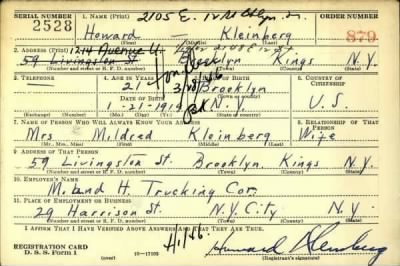 SERIAL NUMBER 1. NAME (Print) 2105 E. ORDER NUMBER
2528 Howard — Kleinberg 879
2. ADDRESS (Print) 1214 Avenue U
59 Livingston St Brooklyn Kings N.Y.
(Number and street or R. F. D. number) (Town) (County) (State)
3. TELEPHONE 4. AGE IN YEARS 5. PLACE OF BIRTH 6. COUNTRY OF CITIZENSHIP
21 Brooklyn
DATE OF BIRTH
1-21-1919 N.Y. U.S.
(Exchange) (Number) (Mo.) (Day) (Yr.) (Town or county) (State or country)
7. NAME OF PERSON WHO WILL ALWAYS KNOW YOUR ADDRESS 8. RELATIONSHIP OF THAT PERSON
Mrs Mildred Kleinberg Wife
(Mr., Mrs., Miss) (First) (Middle) (Last)
9. ADDRESS OF THAT PERSON
59 Livingston St. Brooklyn Kings N.Y.
(Number and street or R. F. D. number) (Town) (County) (State)
10. EMPLOYER'S NAME
M. and H. Trucking Cor.
11. PLACE OF EMPLOYMENT OR BUSINESS
29 Harrison St. N.Y. City N.Y.
(Number and street or R. F. D. number) (Town) (County) (State)
I AFFIRM THAT I HAVE VERIFIED ABOVE ANSWERS AND THAT THEY ARE TRUE.
REGISTRATION CARD
D. S. S. Form 1 16—17105 Howard Kleinberg